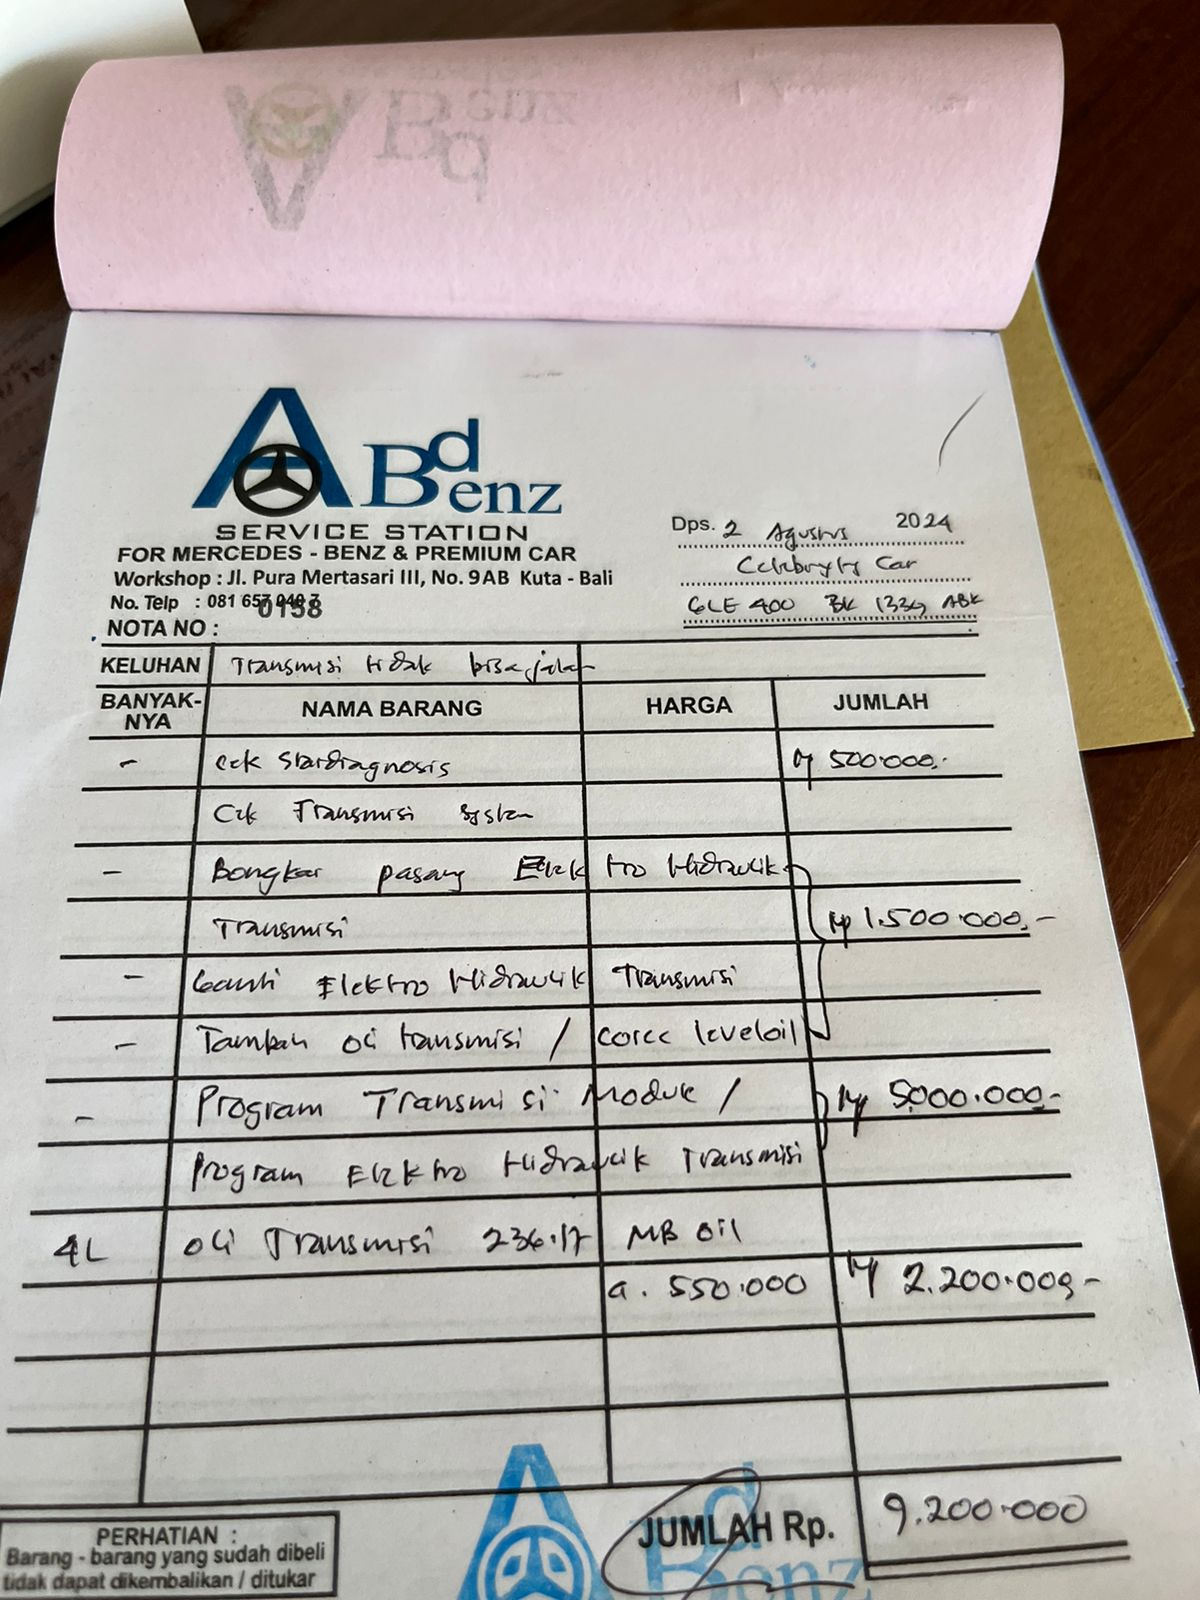 A Bd Benz
SERVICE STATION
FOR MERCEDES - BENZ & PREMIUM CAR
Workshop : Jl. Pura Mertasari III, No. 9AB Kuta - Bali
No. Telp : 081 657
0158
NOTA NO :
Dps. 2 Agustus 2024
Car
GLE 400 BK 1334 ABK
KELUHAN Transmisi tidak bisa jalan
BANYAK-NYA NAMA BARANG HARGA JUMLAH
- cek Stardiagnosis Rp 500.000,-
Cek Transmisi System
- Bongkar pasang Elektro Hidraulik
Transmisi Rp 1.500.000,-
- Ganti Elektro Hidraulik Transmisi
- Tambah oli transmisi / level oil
- Program Transmisi Module / Rp 5.000.000,-
Program Elektro Hidraulik Transmisi
4L oli Transmisi 236.17 MB oil
a. 550.000 Rp 2.200.000,-
JUMLAH Rp. 9.200.000
PERHATIAN :
Barang - barang yang sudah dibeli
tidak dapat dikembalikan / ditukar
A Bd Benz